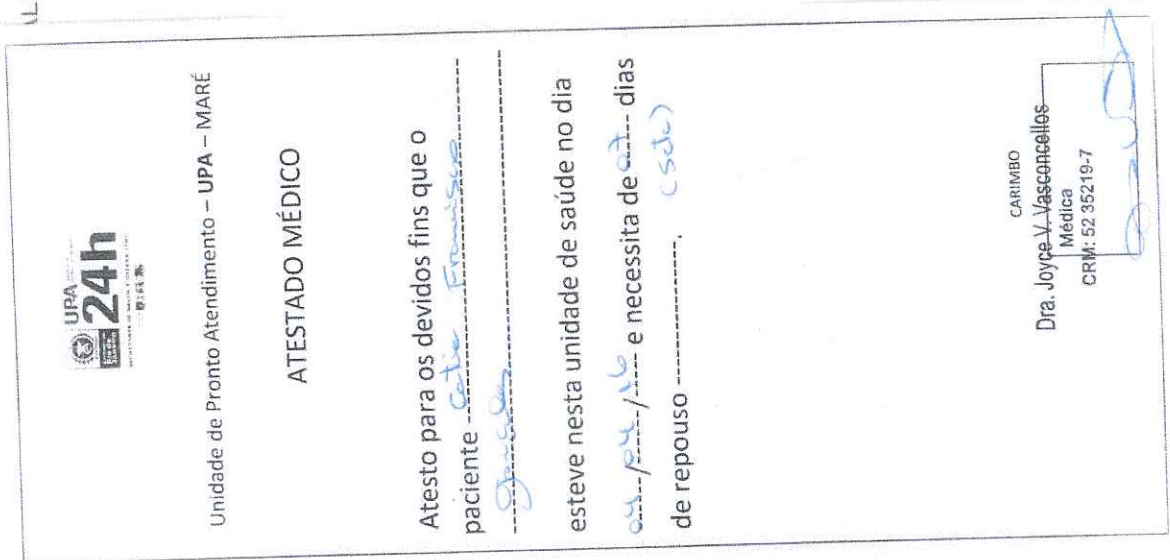 UPA
24h
Unidade de Pronto Atendimento – UPA – MARÉ
ATESTADO MÉDICO
Atesto para os devidos fins que o
paciente Catie Francisco
esteve nesta unidade de saúde no dia
04/04/16 e necessita de 07 dias
de repouso . (sete)
CARIMBO
Dra. Joyce V. Vasconcellos
Médica
CRM: 52 35219-7